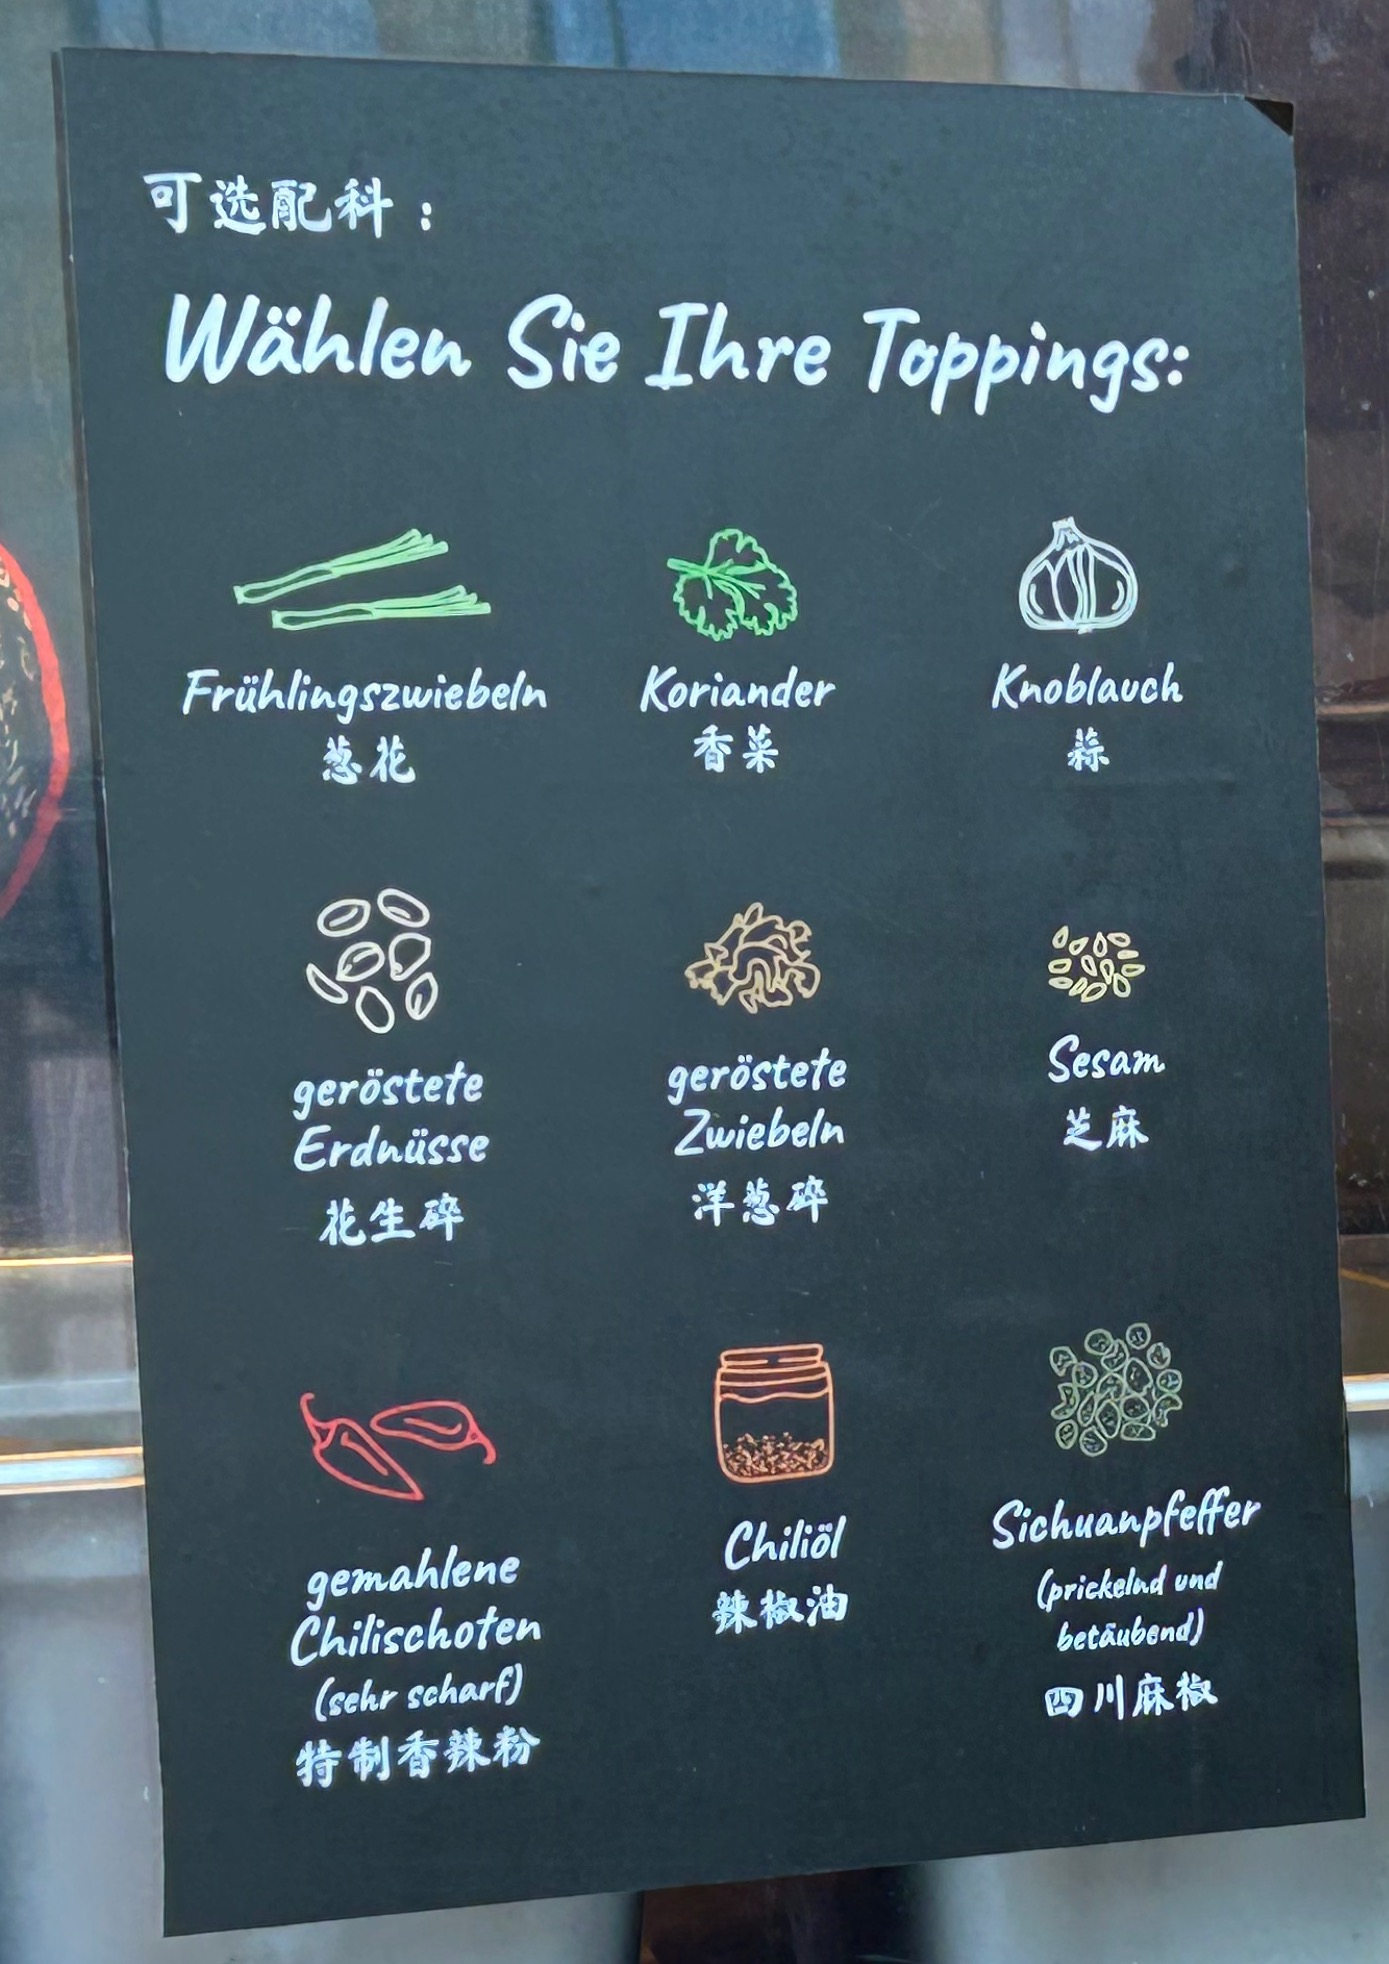 可选配科：
Wählen Sie Ihre Toppings:
Frühlingszwiebeln
葱花
Koriander
香菜
Knoblauch
蒜
geröstete
Erdnüsse
花生碎
geröstete
Zwiebeln
洋葱碎
Sesam
芝麻
gemahlene
Chilischoten
(sehr scharf)
特制香辣粉
Chiliöl
辣椒油
Sichuanpfeffer
(prickelnd und
betäubend)
四川麻椒